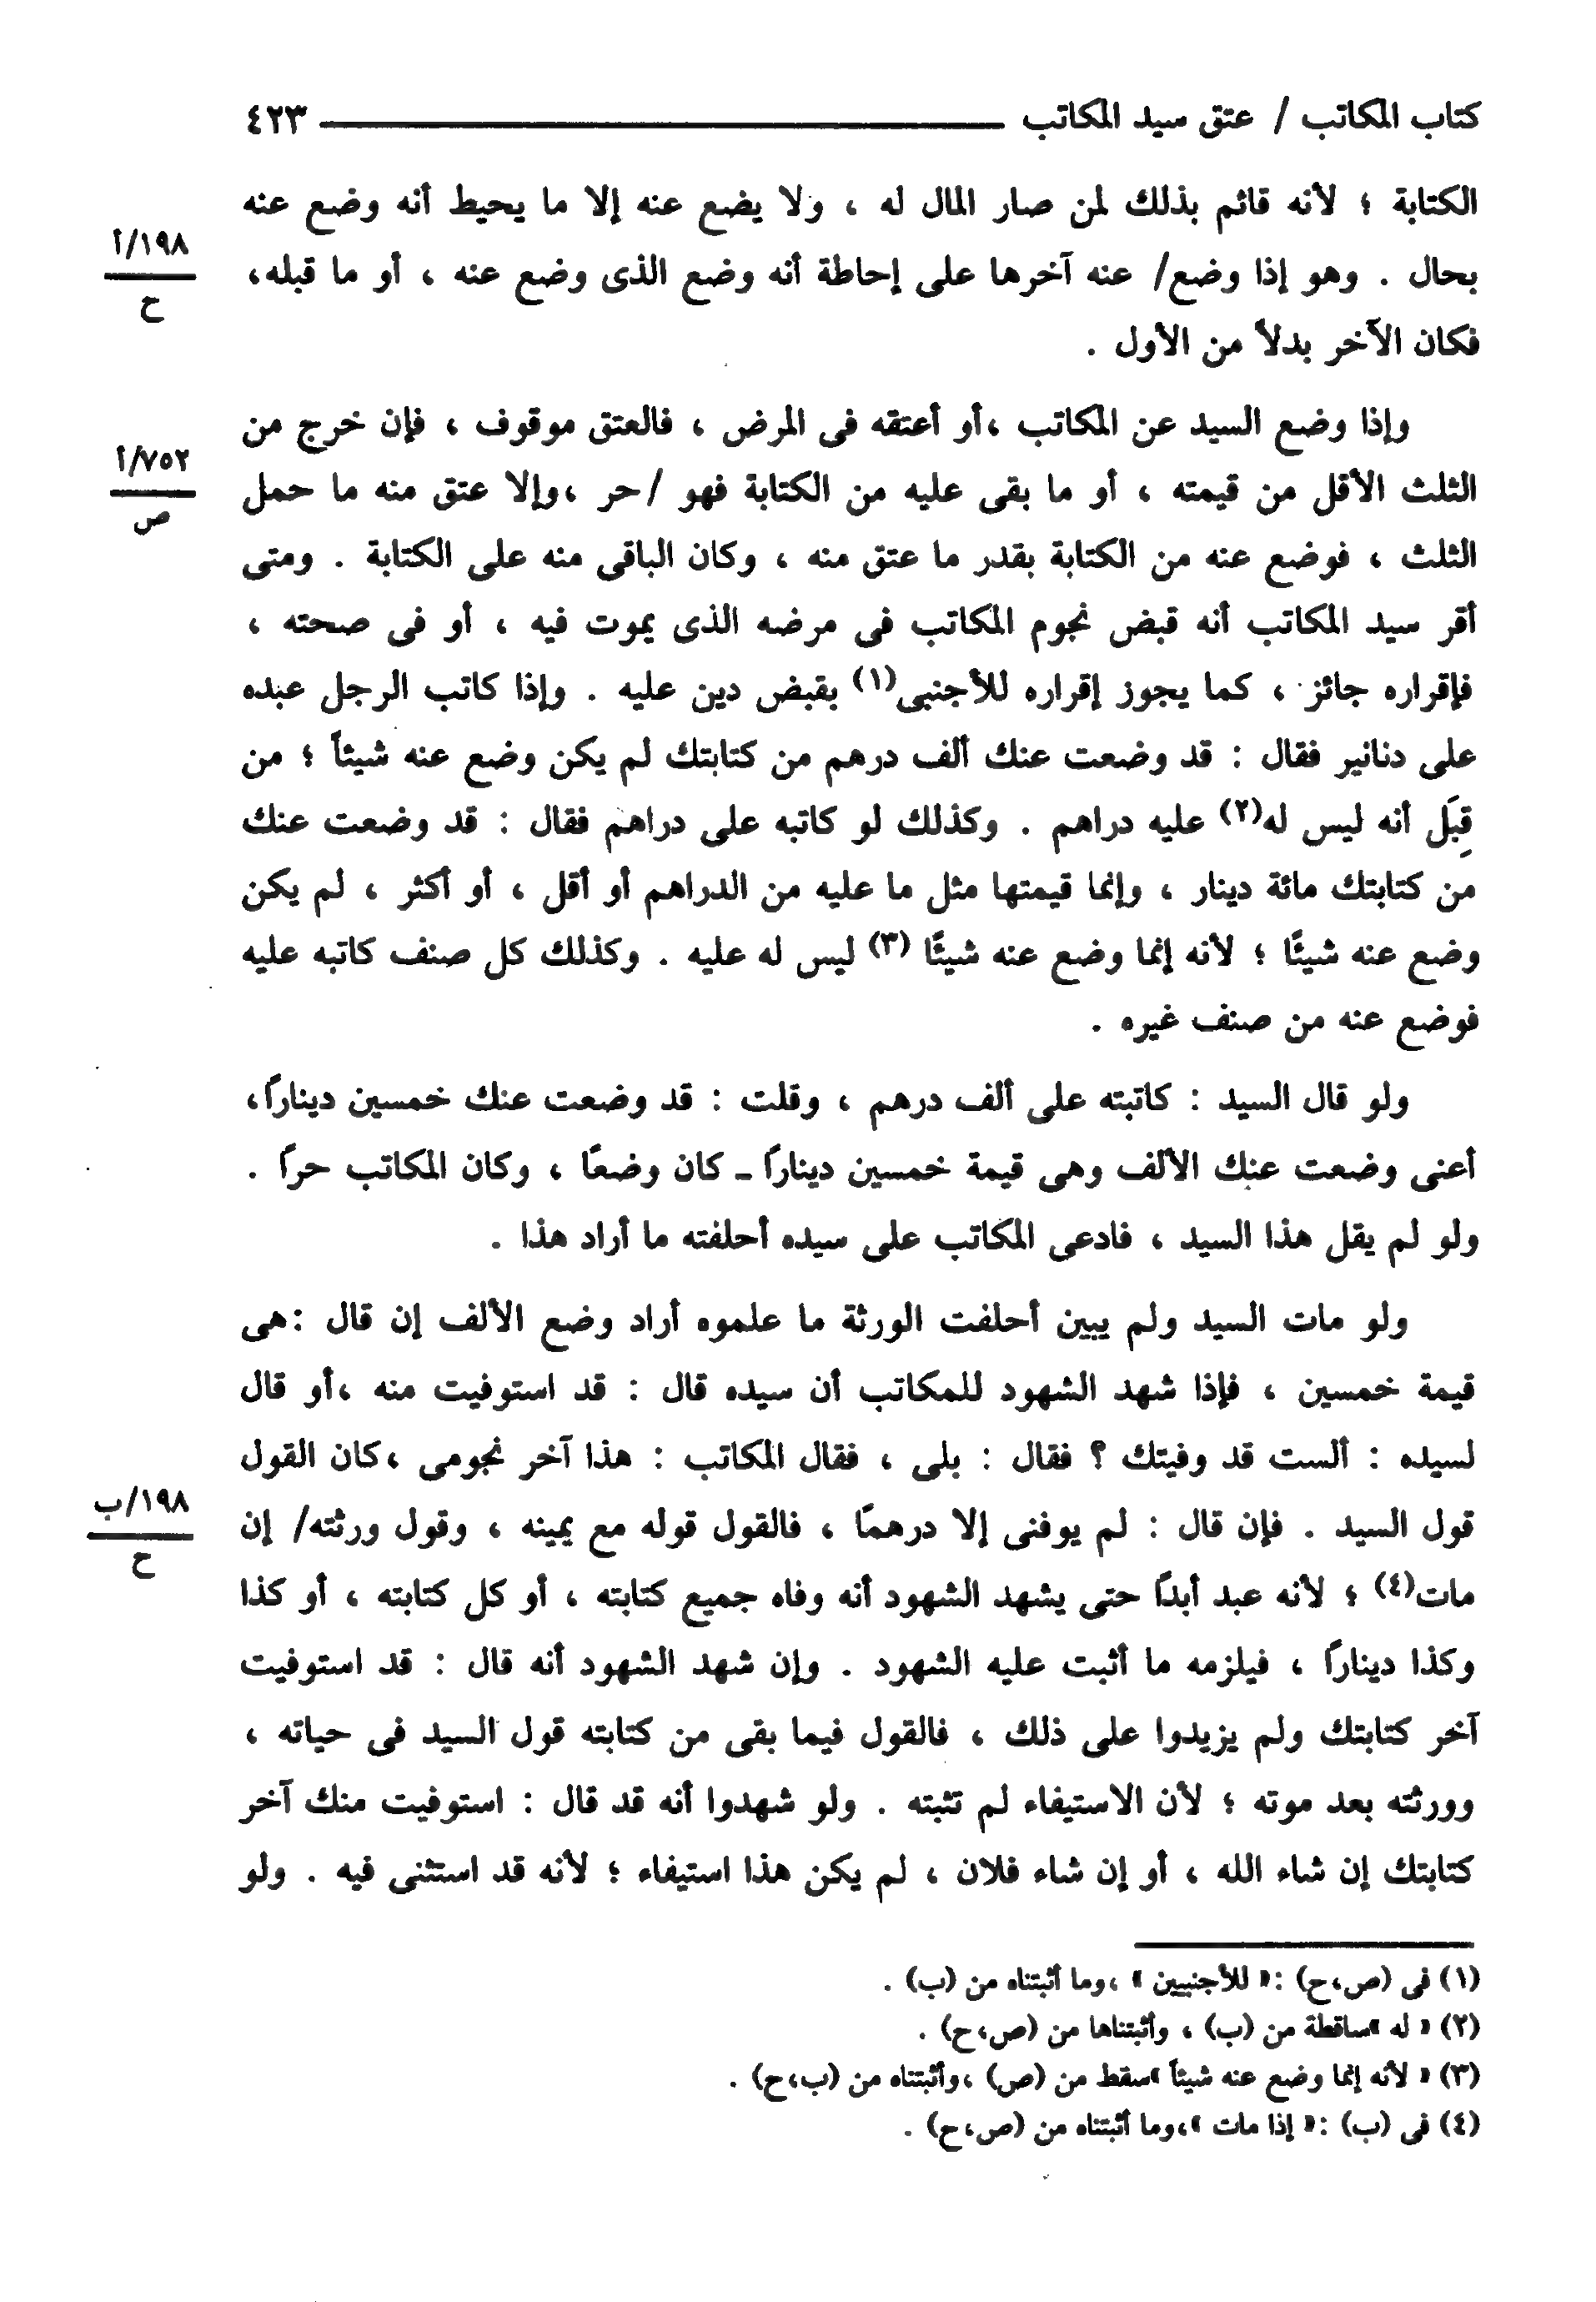 كتاب المكاتب / عتق سيد المكاتب ٤٢٣
الكتابة ؛ لأنه قائم بذلك لمن صار المال له ، ولا يضع عنه إلا ما يحيط أنه وضع عنه
١٩٨/أ
بحال . وهو إذا وضع/ عنه آخرها على إحاطة أنه وضع الذى وضع عنه ، أو ما قبله،
ح
فكان الآخر بدلاً من الأول .
وإذا وضع السيد عن المكاتب ،أو أعتقه فى المرض ، فالعتق موقوف ، فإن خرج من
٧٥٢/أ
الثلث الأقل من قيمته ، أو ما بقى عليه من الكتابة فهو /حر ،وإلا عتق منه ما حمل
ص
الثلث ، فوضع عنه من الكتابة بقدر ما عتق منه ، وكان الباقى منه على الكتابة . ومتى
أقر سيد المكاتب أنه قبض نجوم المكاتب فى مرضه الذى يموت فيه ، أو فى صحته ،
فإقراره جائز ، كما يجوز إقراره للأجنبى(١) بقبض دين عليه . وإذا كاتب الرجل عبده
على دنانير فقال : قد وضعت عنك ألف درهم من كتابتك لم يكن وضع عنه شيئاً ؛ من
قِبَل أنه ليس له(٢) عليه دراهم . وكذلك لو كاتبه على دراهم فقال : قد وضعت عنك
من كتابتك مائة دينار ، وإنما قيمتها مثل ما عليه من الدراهم أو أقل ، أو أكثر ، لم يكن
وضع عنه شيئًا ؛ لأنه إنما وضع عنه شيئًا (٣) ليس له عليه . وكذلك كل صنف كاتبه عليه
فوضع عنه من صنف غيره .
ولو قال السيد : كاتبته على ألف درهم ، وقلت : قد وضعت عنك خمسين دينارًا،
أعنى وضعت عنك الألف وهى قيمة خمسين دينارًا ـ كان وضعًا ، وكان المكاتب حرًا .
ولو لم يقل هذا السيد ، فادعى المكاتب على سيده أحلفته ما أراد هذا .
ولو مات السيد ولم يبين أحلفت الورثة ما علموه أراد وضع الألف إن قال :هى
قيمة خمسين ، فإذا شهد الشهود للمكاتب أن سيده قال : قد استوفيت منه ،أو قال
لسيده : ألست قد وفيتك ؟ فقال : بلى ، فقال المكاتب : هذا آخر نجومى ،كان القول
١٩٨/ب
قول السيد . فإن قال : لم يوفنى إلا درهمًا ، فالقول قوله مع يمينه ، وقول ورثته/ إن
ح
مات(٤) ؛ لأنه عبد أبدًا حتى يشهد الشهود أنه وفاه جميع كتابته ، أو كل كتابته ، أو كذا
وكذا دينارًا ، فيلزمه ما أثبت عليه الشهود . وإن شهد الشهود أنه قال : قد استوفيت
آخر كتابتك ولم يزيدوا على ذلك ، فالقول فيما بقى من كتابته قول السيد فى حياته ،
وورثته بعد موته ؛ لأن الاستيفاء لم تثبته . ولو شهدوا أنه قد قال : استوفيت منك آخر
كتابتك إن شاء الله ، أو إن شاء فلان ، لم يكن هذا استيفاء ؛ لأنه قد استثنى فيه . ولو
(١) فى (ص،ح) :« للأجنبيين » ،وما أثبتناه من (ب) .
(٢) « له »ساقطة من (ب) ، وأثبتناها من (ص،ح) .
(٣) « لأنه إنما وضع عنه شيئاً »سقط من (ص) ،وأثبتناه من (ب،ح) .
(٤) فى (ب) :« إذا مات »،وما أثبتناه من (ص،ح) .